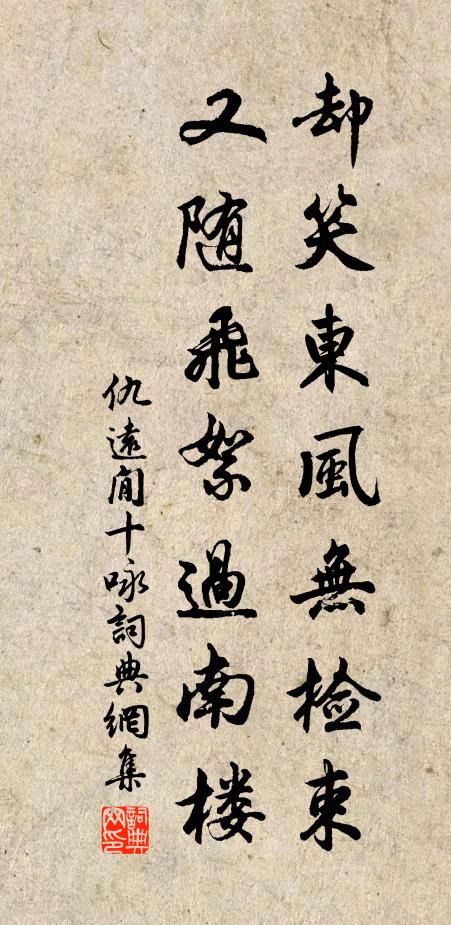 却笑東風無檢束
又随飛絮過南楼
仇遠閒十咏詞典網集
詞典网印